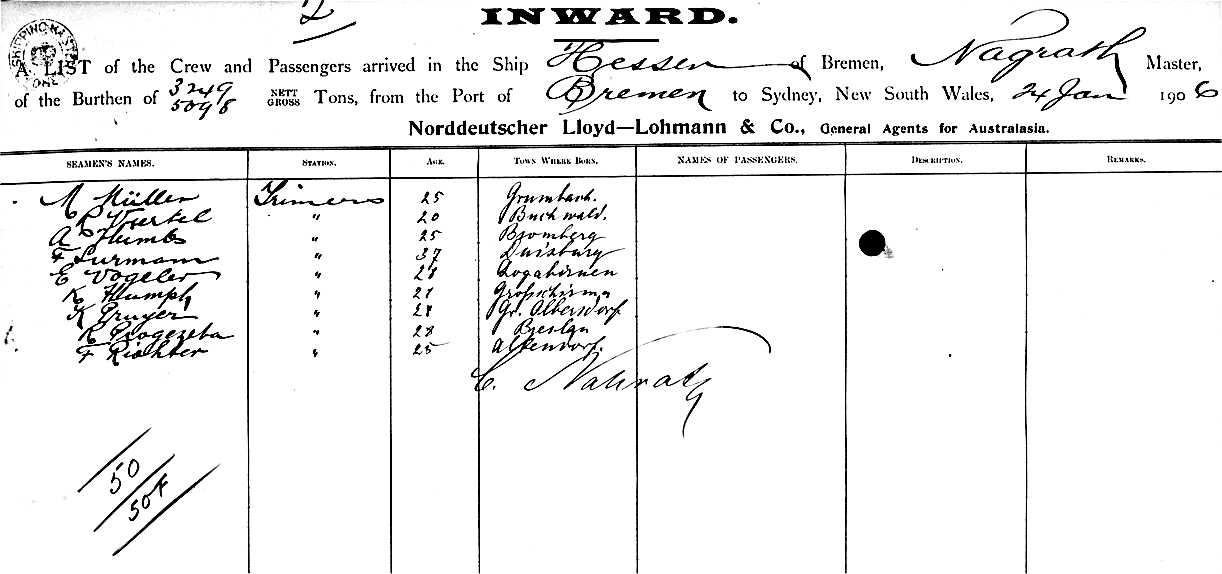 2
INWARD.
A LIST of the Crew and Passengers arrived in the Ship Hessen of Bremen, Nagrath Master,
of the Burthen of 3249 5098 NETT GROSS Tons, from the Port of Bremen to Sydney, New South Wales, 24 Jan 1906
Norddeutscher Lloyd—Lohmann & Co., General Agents for Australasia.
SEAMEN'S NAMES. STATION. AGE. TOWN WHERE BORN. NAMES OF PASSENGERS. DESCRIPTION. REMARKS.
M Müller Trimers 25 Grumbach.
R Viertel " 20 Buchwald.
A " 25 Bromberg
F Lurmann " 37 Duisburg
E Vogeler " 28 Logabirmen
K " 21
K Gruyer " 28 Gr. Olbersdorf
R " 28 Breslau
F Richter " 25 Altendorf.
C. Nahrath
50
504